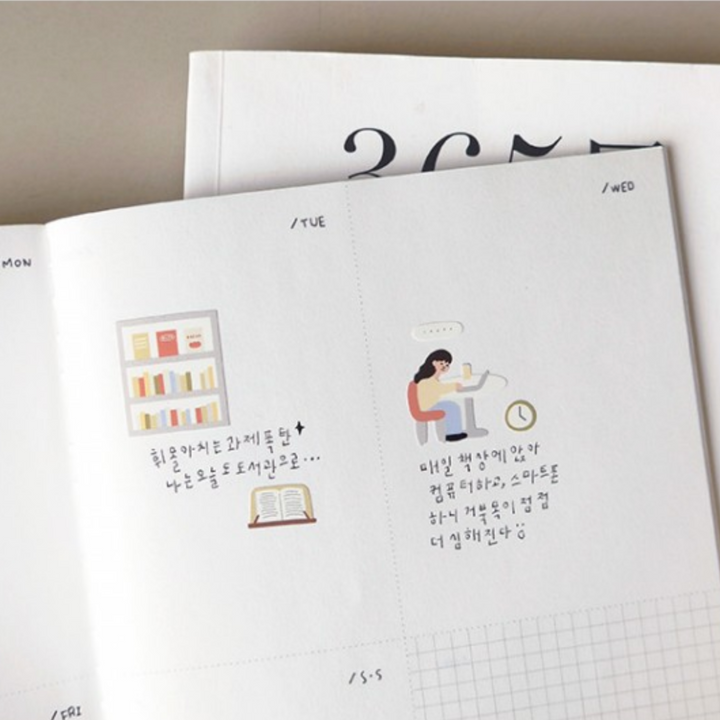 365
MON
/TUE
/WED
휘몰아치는 과제폭탄
나는 오늘도 도서관으로...
매일 책상에 앉아
컴퓨터하고, 스마트폰
하니 거북목이 점점
더 심해진다
/FRI
/S·S